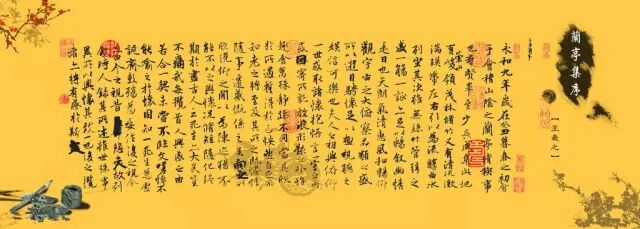 蘭亭集序
【王羲之】
永和九年歲在癸丑暮春之初會
于會稽山陰之蘭亭脩稧事
也羣賢畢至少長咸集此地
有崇山峻領茂林脩竹又有清流激
湍映帶左右引以為流觴曲水
列坐其次雖無絲竹管弦之
盛一觴一詠亦足以暢敘幽情
是日也天朗氣清惠風和暢仰
觀宇宙之大俯察品類之盛
所以遊目騁懷足以極視聽之
娛信可樂也夫人之相與俯仰
一世或取諸懷抱悟言一室之內
或因寄所託放浪形骸之外雖
趣舍萬殊靜躁不同當其欣
於所遇蹔得於己快然自足不
知老之將至及其所之既惓情
隨事遷感慨係之矣向之所
欣俛仰之閒以為陳迹猶不
能不以之興懷況脩短隨化終
期於盡古人云死生亦大矣豈
不痛哉每攬昔人興感之由
若合一契未嘗不臨文嗟悼不
能喻之於懷固知一死生為虛
誕齊彭殤為妄作後之視今
亦由今之視昔悲夫故列
敘時人錄其所述雖世殊事
異所以興懷其致一也後之攬
者亦將有感於斯文